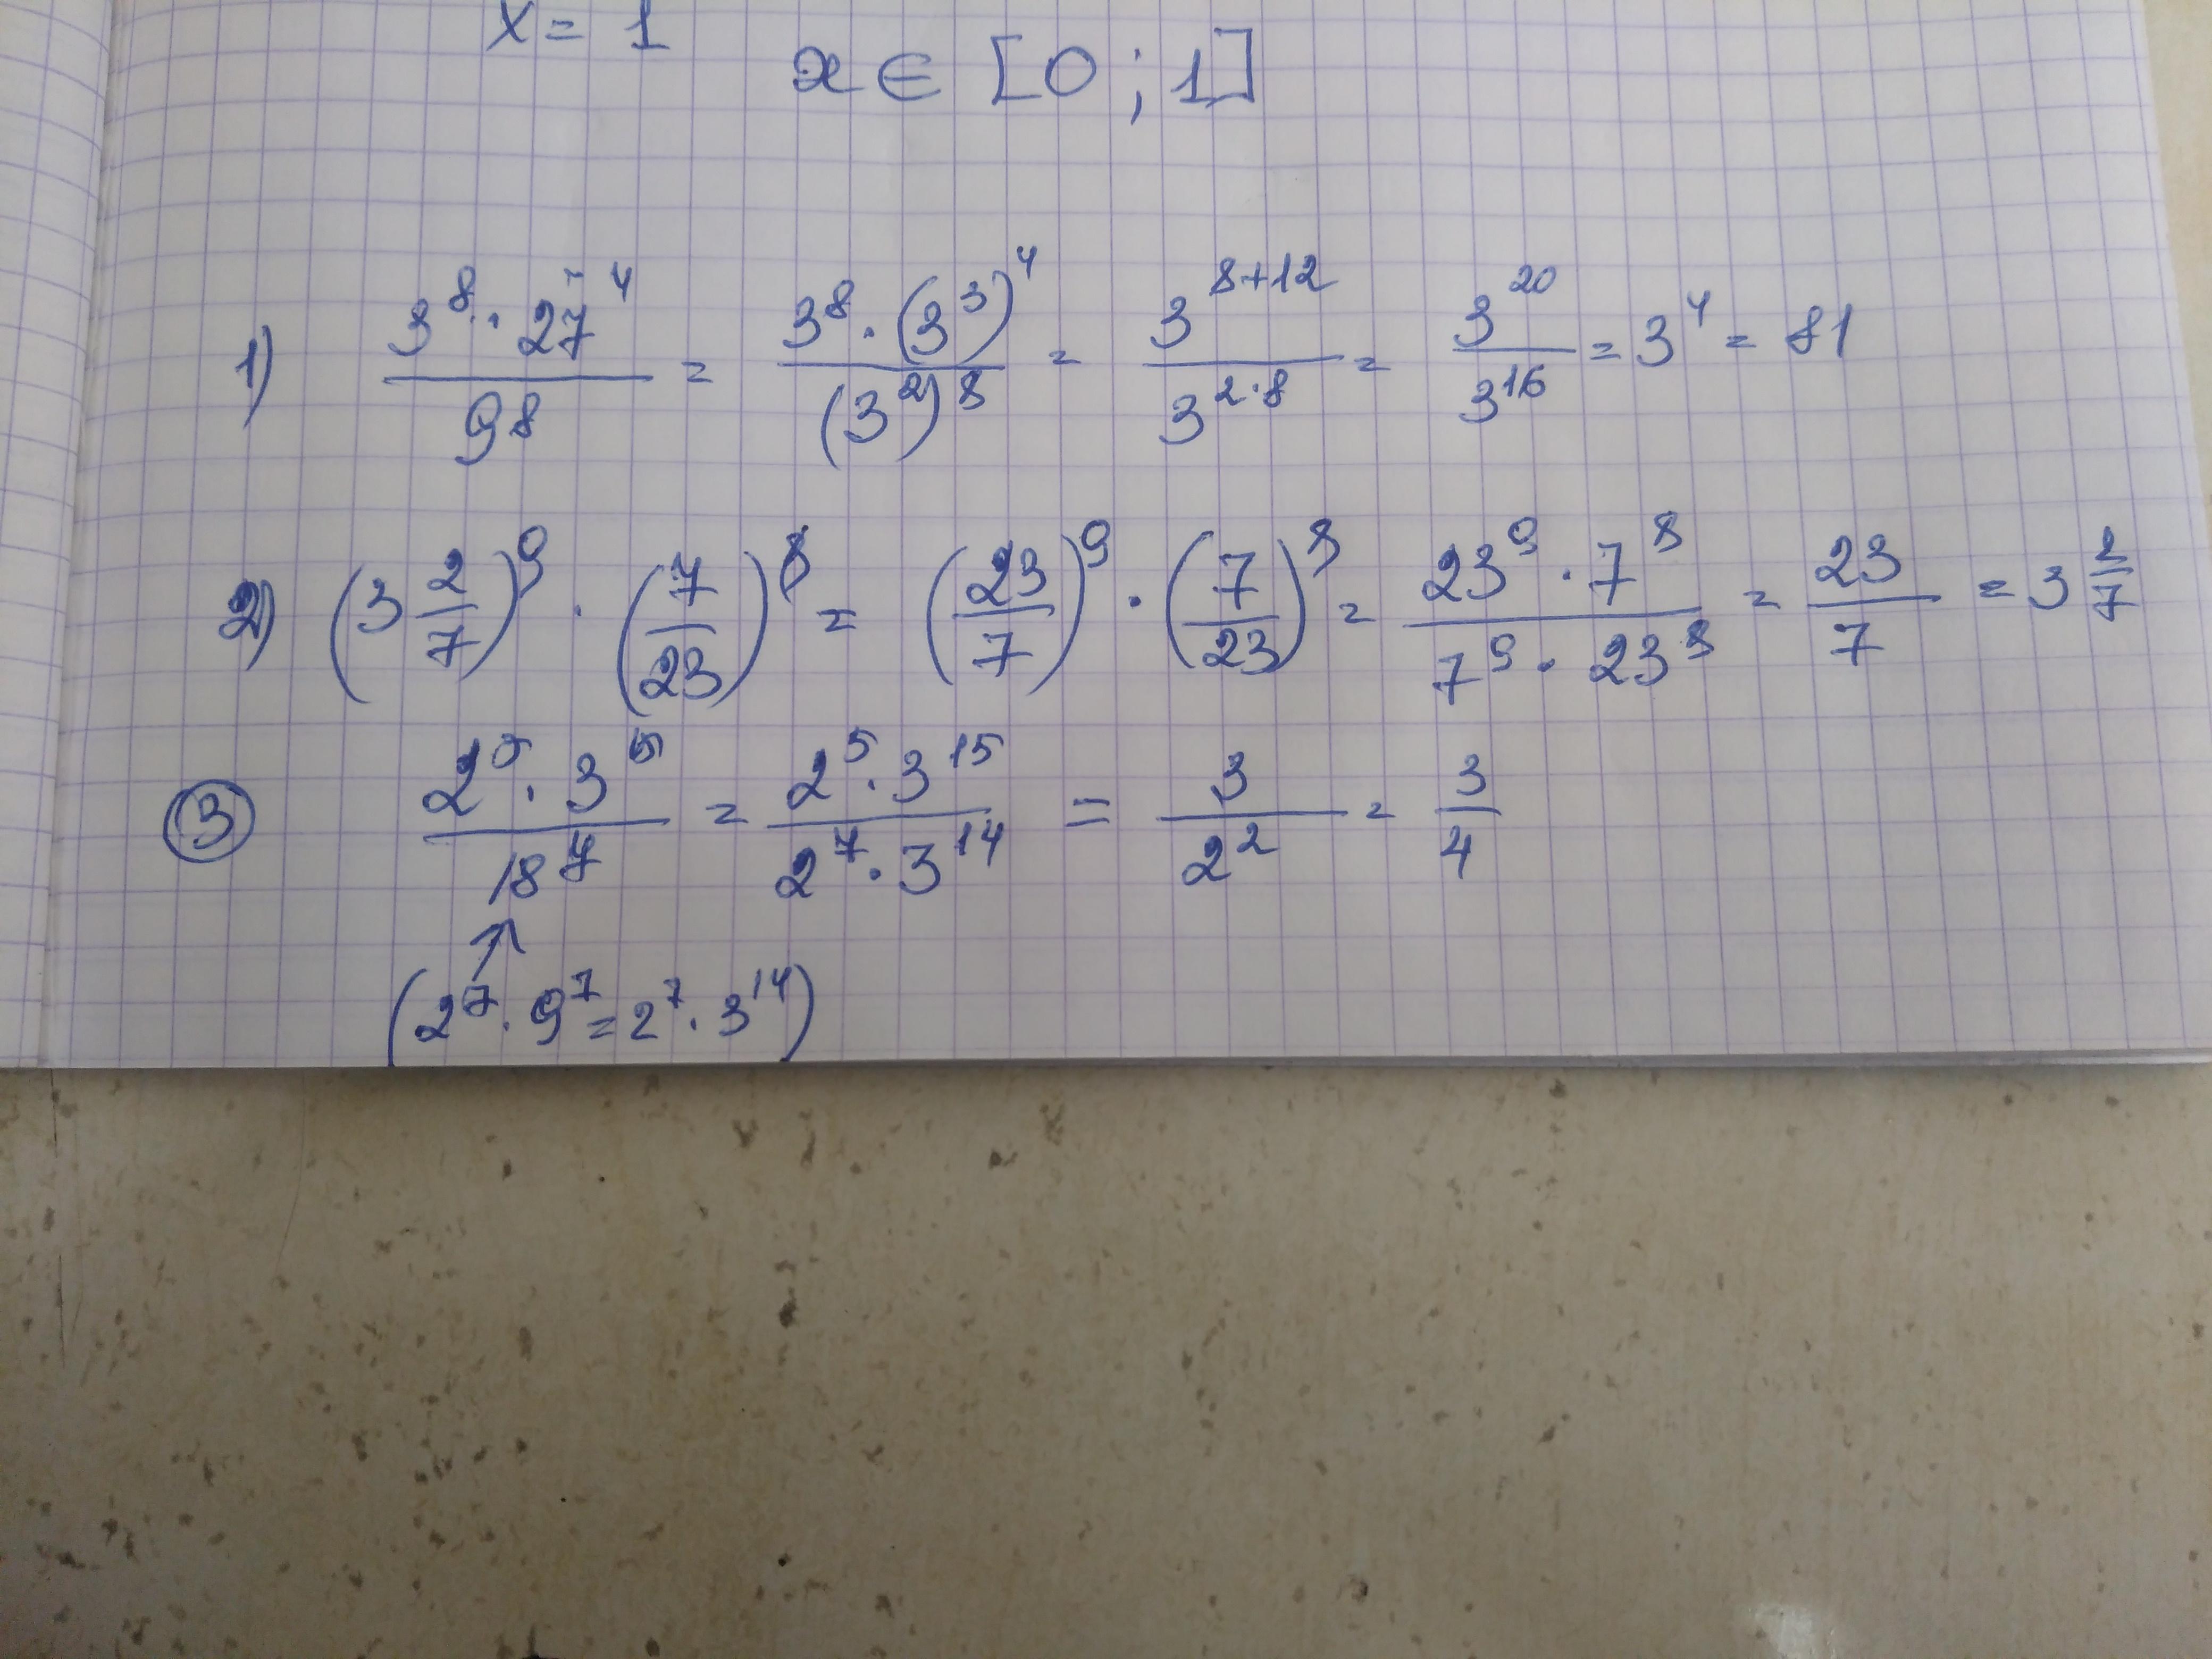 x = 1
x ∈ [0 ; 1]
1) (3^8 · 27^4)/(9^8) = (3^8 · (3^3)^4)/((3^2)^8) = (3^(8+12))/(3^(2·8)) = (3^20)/(3^16) = 3^4 = 81
2) (3 2/7)^9 · (7/23)^8 = (23/7)^9 · (7/23)^8 = (23^9 · 7^8)/(7^9 · 23^8) = 23/7 = 3 2/7
3 (2^5 · 3^5)/(18^7) = (2^5 · 3^15)/(2^7 · 3^14) = 3/(2^2) = 3/4
↑
(2^7 · 9^7 = 2^7 · 3^14)